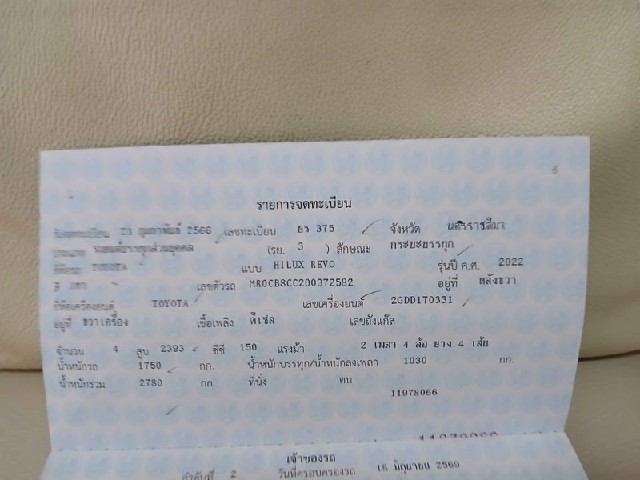 6
รายการจดทะเบียน
วันจดทะเบียน 23 กุมภาพันธ์ 2566 เลขทะเบียน 375 จังหวัด นครราชสีมา
ประเภท รถยนต์บรรทุกส่วนบุคคล (รย. 3 ) ลักษณะ กระบะบรรทุก
TOYOTA แบบ HILUX REVO รุ่นปี ค.ศ. 2022
สี เทา เลขตัวรถ อยู่ที่ หลังขวา
ยี่ห้อเครื่องยนต์ TOYOTA เลขเครื่องยนต์
อยู่ที่ ขวาเครื่อง เชื้อเพลิง ดีเซล เลขถังแก๊ส
จำนวน 4 สูบ 2393 ซีซี 150 แรงม้า 2 เพลา 4 ล้อ ยาง 4 เส้น
น้ำหนักรถ 1750 กก. น้ำหนักบรรทุก/น้ำหนักลงเพลา 1030 กก.
น้ำหนักรวม 2780 กก ที่นั่ง คน
11078066
เจ้าของรถ
ลำดับที่ 2 วันที่ครอบครองรถ มิถุนายน